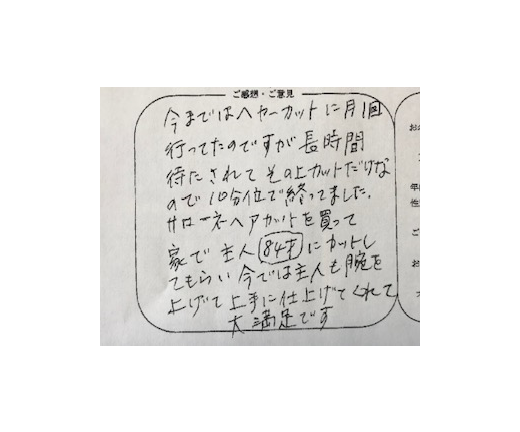 ご感想・ご意見
今まではヘヤーカットに月1回
行ってたのですが長時間
待たされてその上カットだけな
ので10分位で終ってました。
サローネヘアカットを買って
家で主人84才にカットし
てもらい今では主人も腕を
上げて上手に仕上げてくれて
大満足です
お
年
性
ご
お